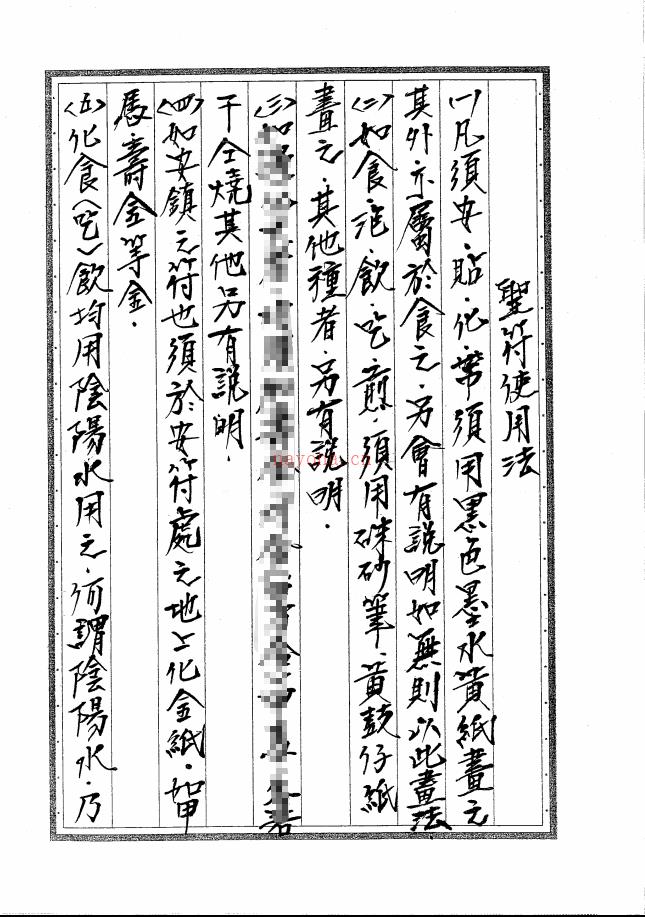 聖符使用法
(一)凡須安．貼．化．帶須用黑色墨水黃紙畫之
其外亦屬於食之．另會有說明如無則以此畫法．
(二)如食．泡．飲．吃．煎．須用硃砂筆．黃鼓仔紙
畫之．其他種者．另有說明．
(三)如
干仝燒其他另有說明．
(四)如安鎮之符也須於安符處之地上化金紙．如甲
馬．壽金等金．
(五)化食(吃)飲均用陰陽水用之．何謂陰陽水．乃